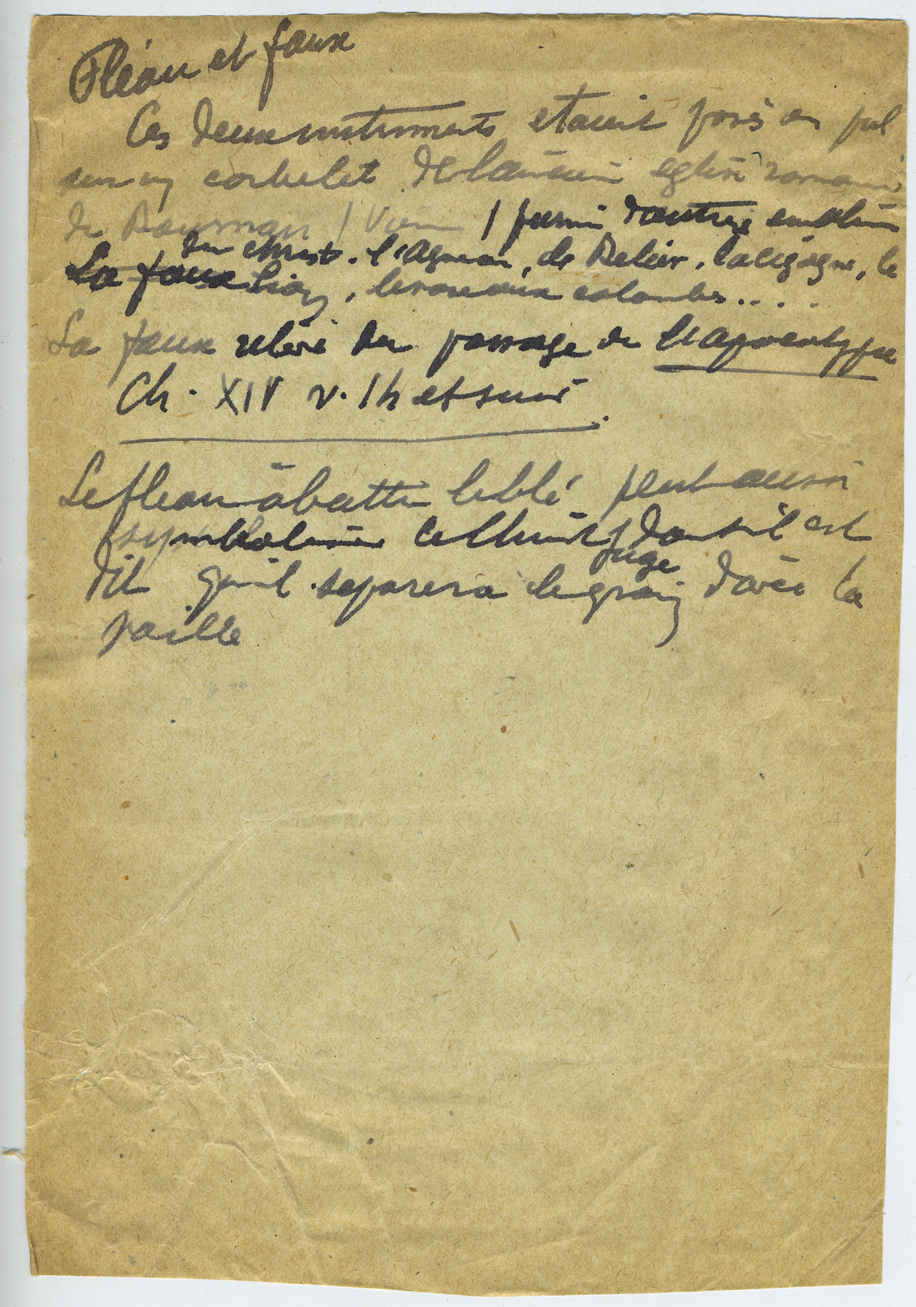 Fléau et faux
Ces deux instruments etaient posés en pal
sur un corbelet de l'ancien eglise romane
de / Vienne / parmi d'autres emblèmes
du christ. l'Agneau, le Belier, la cigogne, le
La faux Lion, les oiseaux colombes....
La faux relève du passage de l'apocalypse
Ch. XIV v. 14 et suiv.
Le fleau à battre le blé peut aussi
symboliser Christ dont il est
juge
dit qu'il separera le grain d'avec la
paille